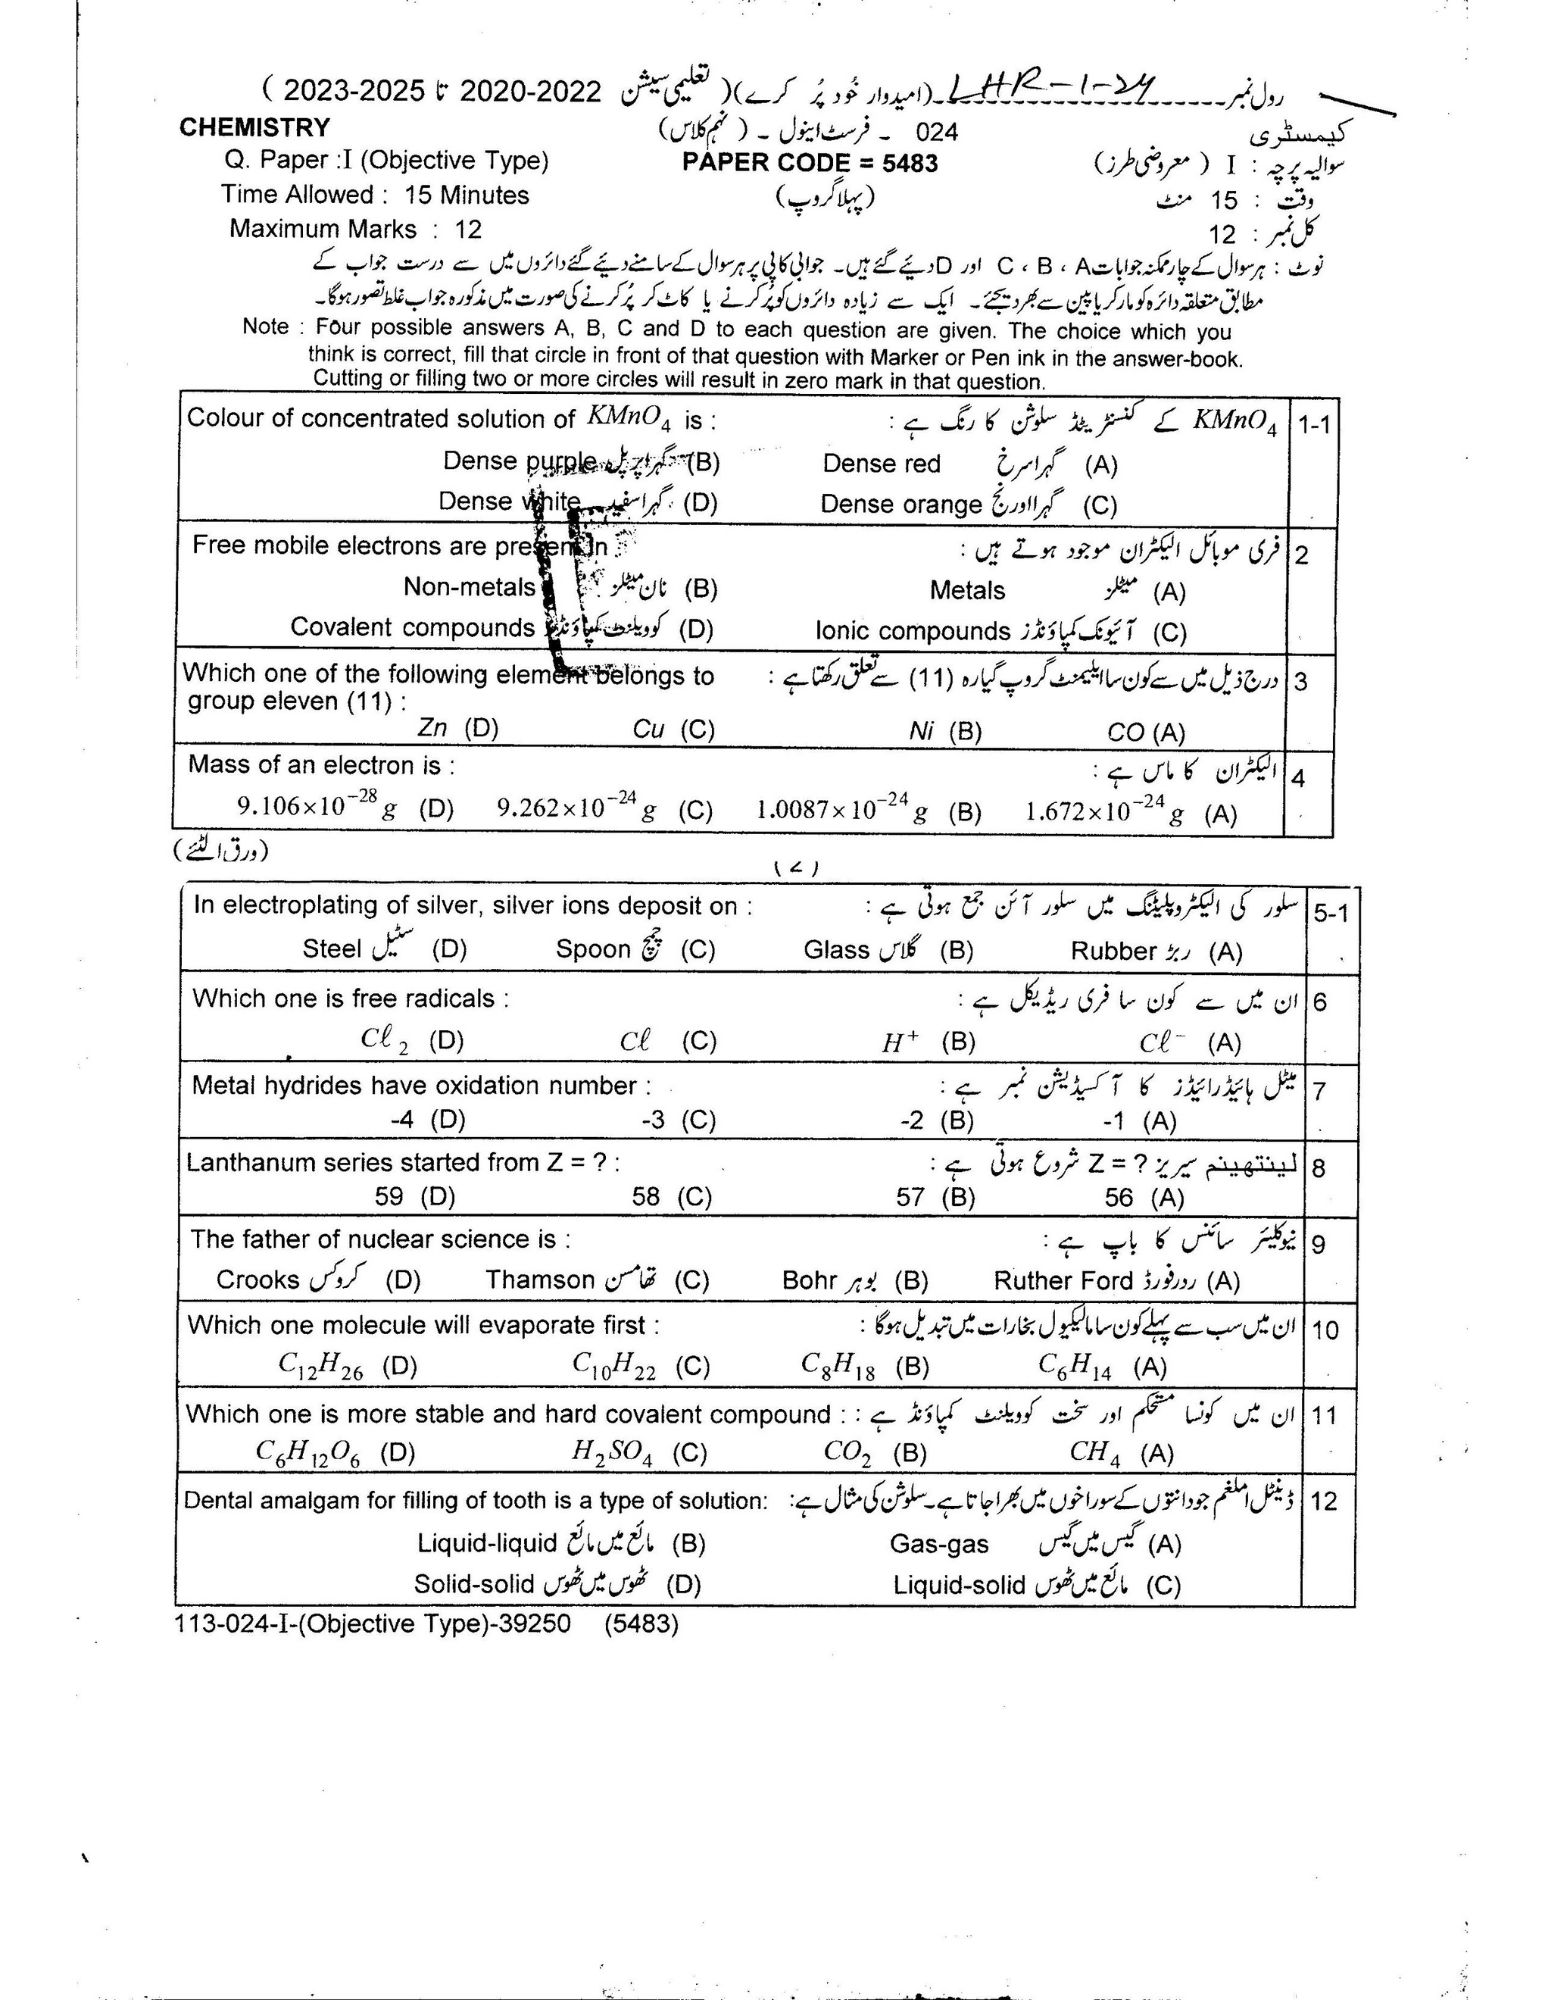 رول نمبر LHR-1-24 (امیدوار خُود پُر کرے) (تعلیمی سیشن 2020-2022 تا 2023-2025)
CHEMISTRY 024 - فرسٹ اینول - (نہم کلاس) کیمسٹری
Q. Paper :I (Objective Type) PAPER CODE = 5483 سوالیہ پرچہ : I (معروضی طرز)
Time Allowed : 15 Minutes (پہلا گروپ) وقت : 15 منٹ
Maximum Marks : 12 کل نمبر : 12
نوٹ : ہر سوال کے چار ممکنہ جوابات A ، B ، C اور D دیئے گئے ہیں۔ جوابی کاپی پر ہر سوال کے سامنے دیئے گئے دائروں میں سے درست جواب کے
مطابق متعلقہ دائرہ کو مارکر یا پین سے بھر دیجئے۔ ایک سے زیادہ دائروں کو پُر کرنے یا کاٹ کر پُر کرنے کی صورت میں مذکورہ جواب غلط تصور ہوگا۔
Note : Four possible answers A, B, C and D to each question are given. The choice which you
think is correct, fill that circle in front of that question with Marker or Pen ink in the answer-book.
Cutting or filling two or more circles will result in zero mark in that question.
Colour of concentrated solution of KMnO₄ is : KMnO₄ کے کنسنٹریٹڈ سلوشن کا رنگ ہے : 1-1
Dense purple گہرا پرپل (B) Dense red گہرا سرخ (A)
Dense white گہرا سفید (D) Dense orange گہرا اورنج (C)
Free mobile electrons are present in : فری موبائل الیکٹران موجود ہوتے ہیں : 2
Non-metals نان میٹلز (B) Metals میٹلز (A)
Covalent compounds کوویلنٹ کمپاؤنڈز (D) Ionic compounds آئیونک کمپاؤنڈز (C)
Which one of the following element belongs to درج ذیل میں سے کون سا ایلیمنٹ گروپ گیارہ (11) سے تعلق رکھتا ہے : 3
group eleven (11) :
Zn (D) Cu (C) Ni (B) CO (A)
Mass of an electron is : الیکٹران کا ماس ہے : 4
9.106×10⁻²⁸ g (D) 9.262×10⁻²⁴ g (C) 1.0087×10⁻²⁴ g (B) 1.672×10⁻²⁴ g (A)
(ورق الٹئے)
(2)
In electroplating of silver, silver ions deposit on : سلور کی الیکٹروپلیٹنگ میں سلور آئن جمع ہوتی ہے : 5-1
Steel سٹیل (D) Spoon چمچ (C) Glass گلاس (B) Rubber ربڑ (A)
Which one is free radicals : ان میں سے کون سا فری ریڈیکل ہے : 6
Cℓ₂ (D) Cℓ (C) H⁺ (B) Cℓ⁻ (A)
Metal hydrides have oxidation number : میٹل ہائیڈرائیڈز کا آکسیڈیشن نمبر ہے : 7
-4 (D) -3 (C) -2 (B) -1 (A)
Lanthanum series started from Z = ? : لینتھینم سیریز Z = ? شروع ہوتی ہے : 8
59 (D) 58 (C) 57 (B) 56 (A)
The father of nuclear science is : نیوکلیئر سائنس کا باپ ہے : 9
Crooks کروکس (D) Thamson تھامسن (C) Bohr بوہر (B) Ruther Ford ردرفورڈ (A)
Which one molecule will evaporate first : ان میں سب سے پہلے کون سا مالیکیول بخارات میں تبدیل ہوگا : 10
C₁₂H₂₆ (D) C₁₀H₂₂ (C) C₈H₁₈ (B) C₆H₁₄ (A)
Which one is more stable and hard covalent compound : ان میں کونسا مستحکم اور سخت کوویلنٹ کمپاؤنڈ ہے : 11
C₆H₁₂O₆ (D) H₂SO₄ (C) CO₂ (B) CH₄ (A)
Dental amalgam for filling of tooth is a type of solution: ڈینٹل املغم جو دانتوں کے سوراخوں میں بھرا جاتا ہے۔ سلوشن کی مثال ہے: 12
Liquid-liquid مائع میں مائع (B) Gas-gas گیس میں گیس (A)
Solid-solid ٹھوس میں ٹھوس (D) Liquid-solid مائع میں ٹھوس (C)
113-024-I-(Objective Type)-39250 (5483)